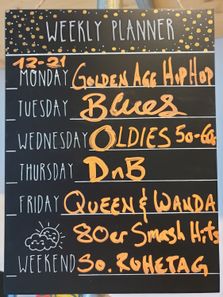 WEEKLY PLANNER
12-21
MONDAY GOLDEN AGE HIPHOP
TUESDAY Blues
WEDNESDAY OLDIES 50-60s
THURSDAY DnB
FRIDAY QUEEN & WANDA
80er Smash Hits
WEEKEND So. RUHETAG